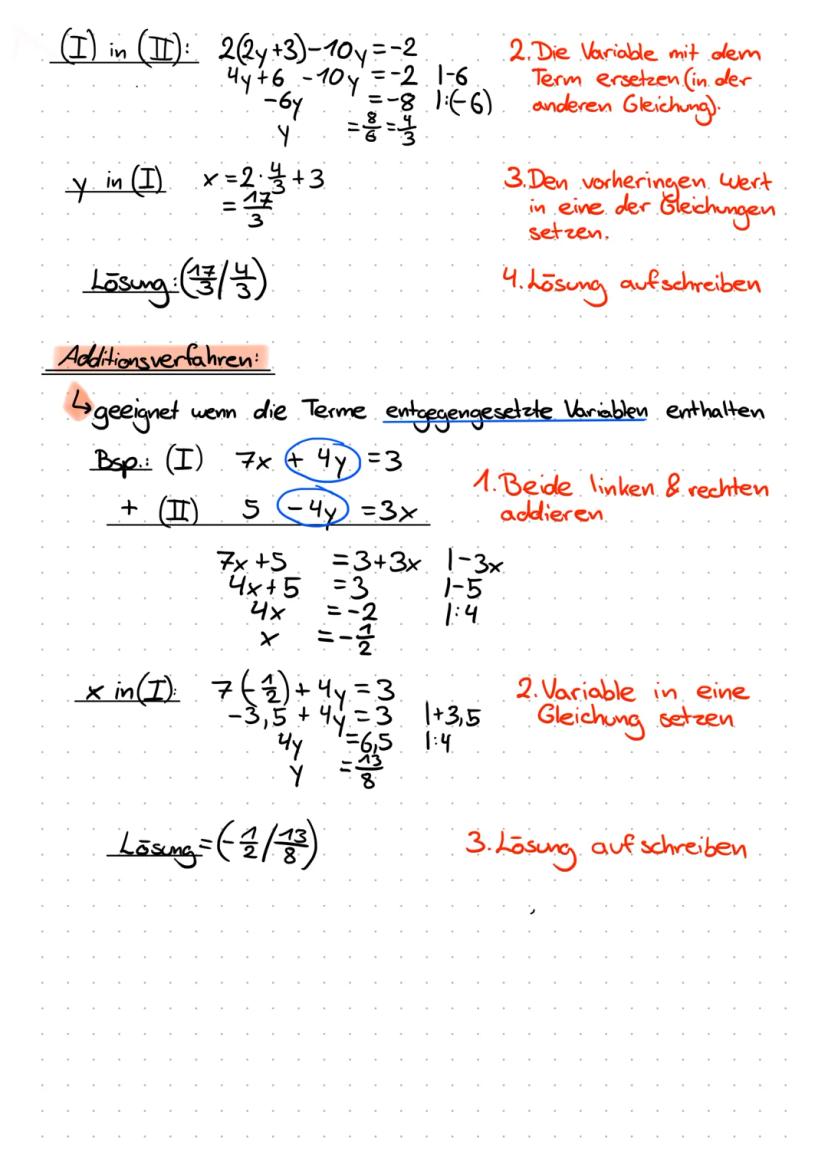 (I) in (II): 2(2y+3)-10y=-2
4y+6 -10y =-2 |-6
-6y =-8 |:(-6)
y =8/6=4/3
2. Die Variable mit dem
Term ersetzen (in der
anderen Gleichung).
y in (I) x=2·4/3+3
=17/3
3. Den vorheringen Wert
in eine der Gleichungen
setzen.
Lösung: (17/3/4/3)
4. Lösung aufschreiben
Additionsverfahren:
↳geeignet wenn die Terme entgegengesetzte Variablen enthalten
Bsp.: (I) 7x + 4y =3
+ (II) 5 -4y =3x
1. Beide linken & rechten
addieren
7x+5 =3+3x |-3x
4x+5 =3 |-5
4x =-2 |:4
x =-1/2
x in (I): 7(-1/2)+4y=3
-3,5+4y=3 |+3,5
4y =6,5 |:4
y =13/8
2. Variable in eine
Gleichung setzen
Lösung=(-1/2/13/8)
3. Lösung aufschreiben